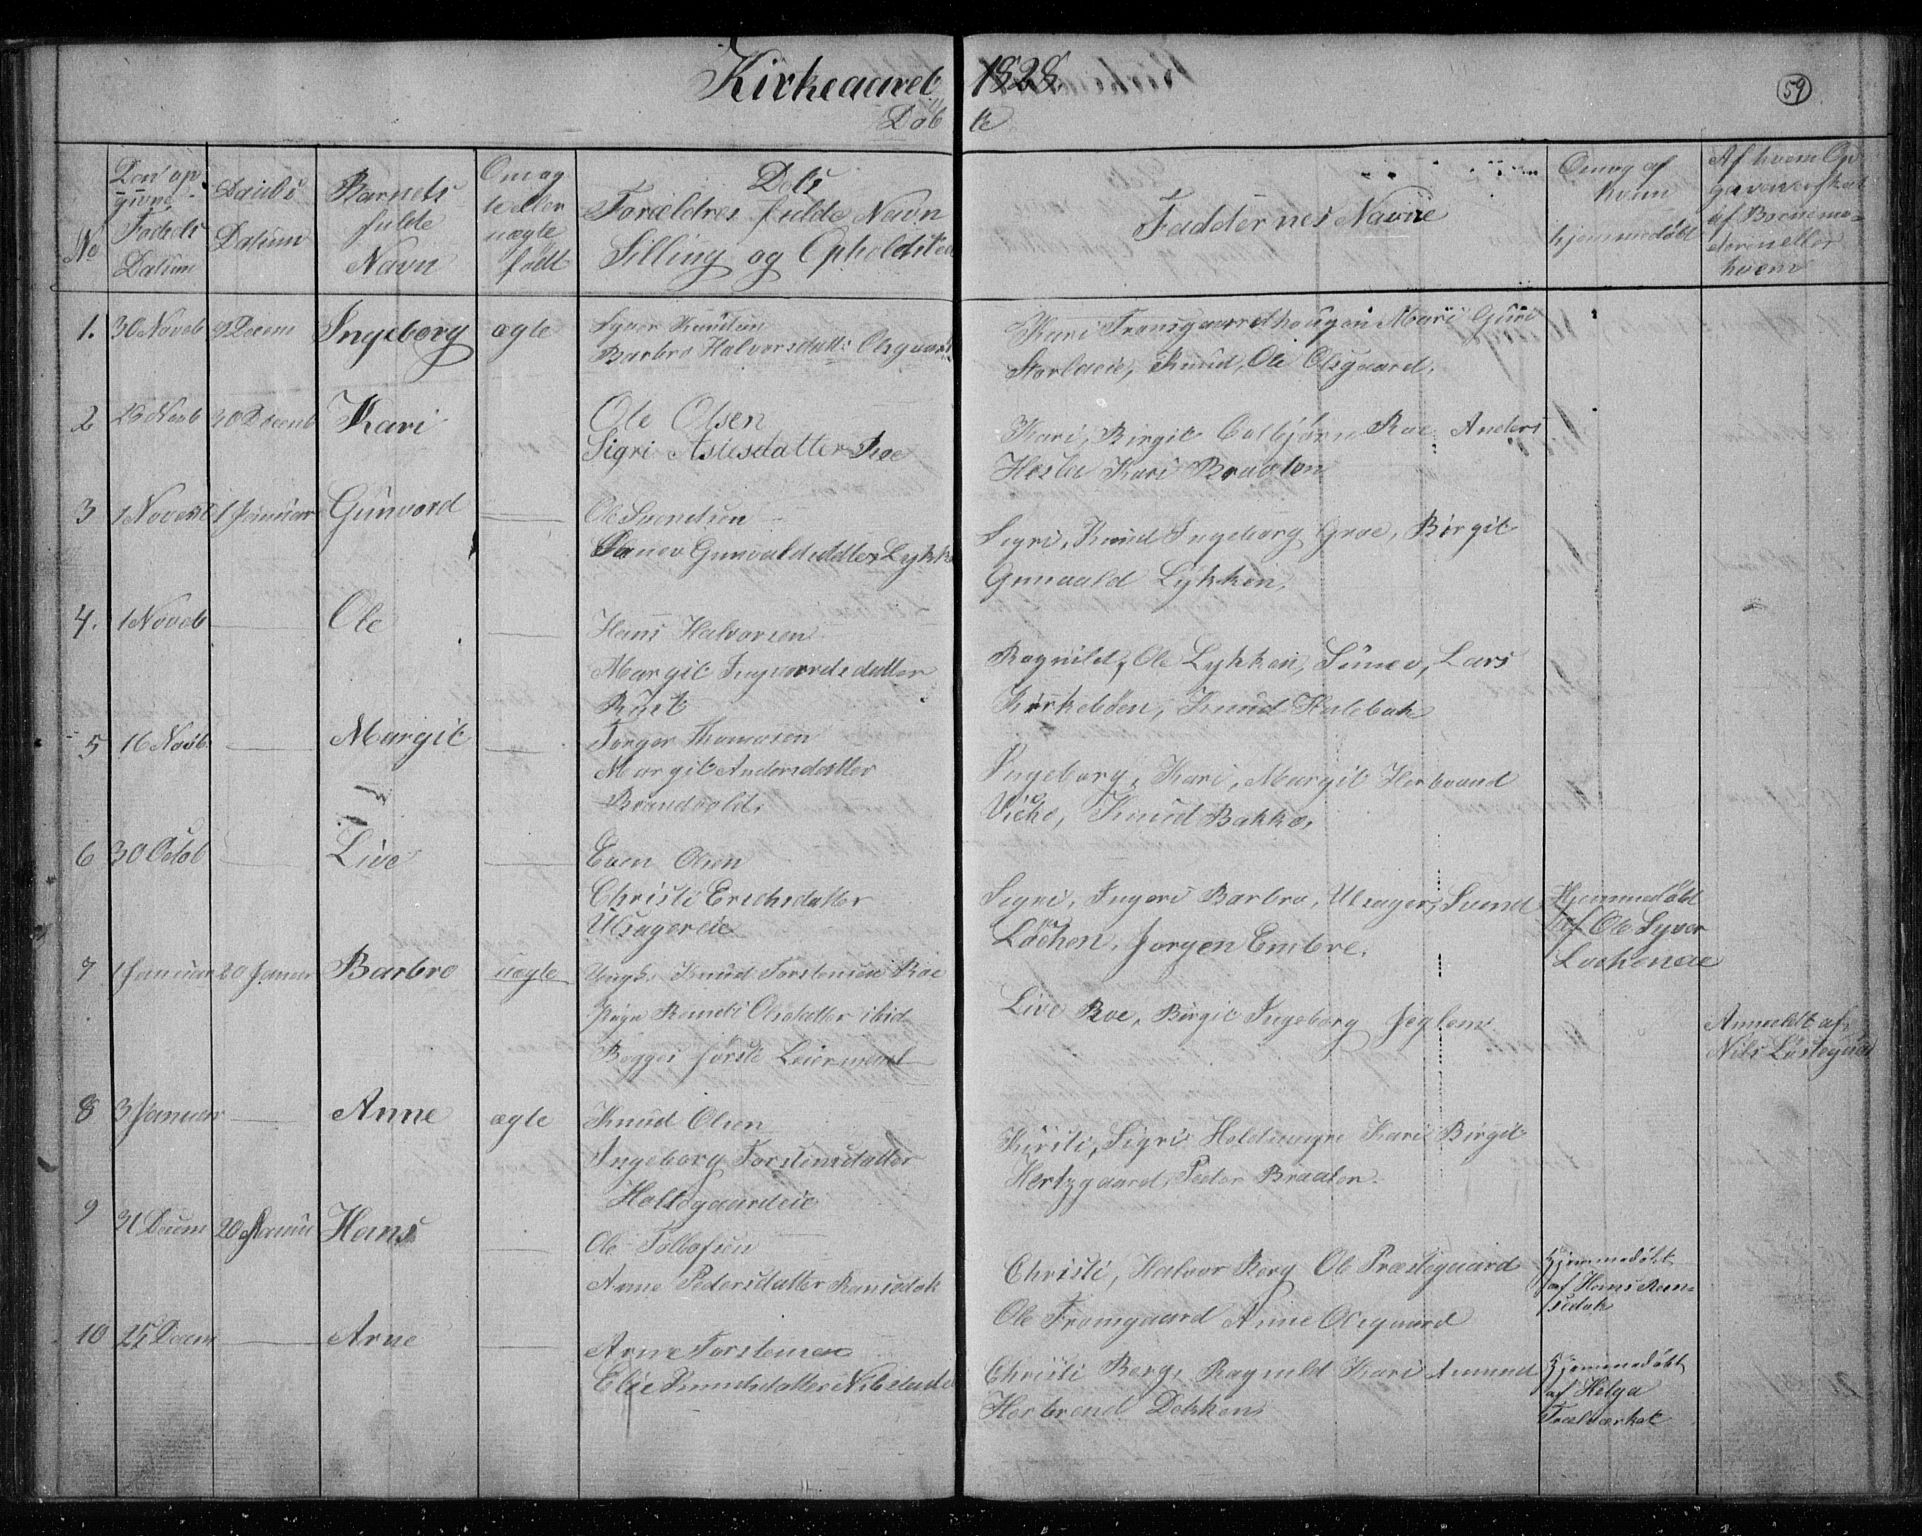 Kirkeaaret 1828
59
Døbte
No
Den opgivne Fødsels Datum
Daabs Datum
Barnets fulde Navn
Om ægte eller uægte født
Forældres fulde Navn
Stilling og Opholdsted
Faddernes Navne
Om og af hvem hjemmedøbt
1. 30 Novob 9 Decem Ingeborg ægte
Syver Knudsen
Barbro Halvorsdatt: Olsgaard
Kari Tronsgaardhougen Mari Guri
Knud, Ole Olsgaard,
2 23 Novb 30 Decemb Kari
Ole Olsen
Sigri Aslesdatter Roe
Kari, Birgit Colbjørn Roe Anders
Kari Braaten
3 1 Novemb 1 Januar Gunvord
Ole Svendsen
Gunvaldsdatter Lykke
Sigri, Knud Ingeborg Groe, Birgit
Gunvald Lykken,
4. 1 Novob Ole
Hans Halvorsen
Margit Ingvarrdsdatter
Rust
Ragnild, Ole Lykken, Sünev, Lars
Kirkebøen, Knud Halebak
5 16 Novb Margit
Torger Thomasen
Margit Andersdatter
Brandvold,
Ingeborg, Kari, Margit Herbrand
Knud Bakke,
6 30 Octob Live
Even Olsen
Christi Erichsdatter
Ulsagereie
Sigri, Ingeri Barbro, Ulsager, Svend
Løchen, Jørgen Embre.
Hjemmedøbt
af Ole Syver
7 1 Januar 20 Januar Barbro uægte
Ungk. Knud Torstensen Roe
Pige Olsdatter ibid
Begges første Leiermaal
Live Roe, Birgit Ingeborg Jeglem
Anmeldt af
Nils
8 3 Januar Anne ægte
Knud Olsen
Ingeborg Torstensdatter
Holtsgaardeie
Kirsti, Sigri Kari Birgit
Hertzgaard, Peder Braaten.
9 31 Decem 20 Januar Hans
Ole Tollefsen
Anne Pedersdatter Ramsdok
Christi, Halvor Berg Ole Præstegaard
Ole Tromgaard Anne Olsgaard
Hjemmedøbt
af Hans Ram-
sdok
10 25 Decem Arne
Arne Torstensen
Elie Knudsdatter
Christi Berg, Ragnild Kari Amund
Herbrend Dokken
Hjemmedøbt
af Helga